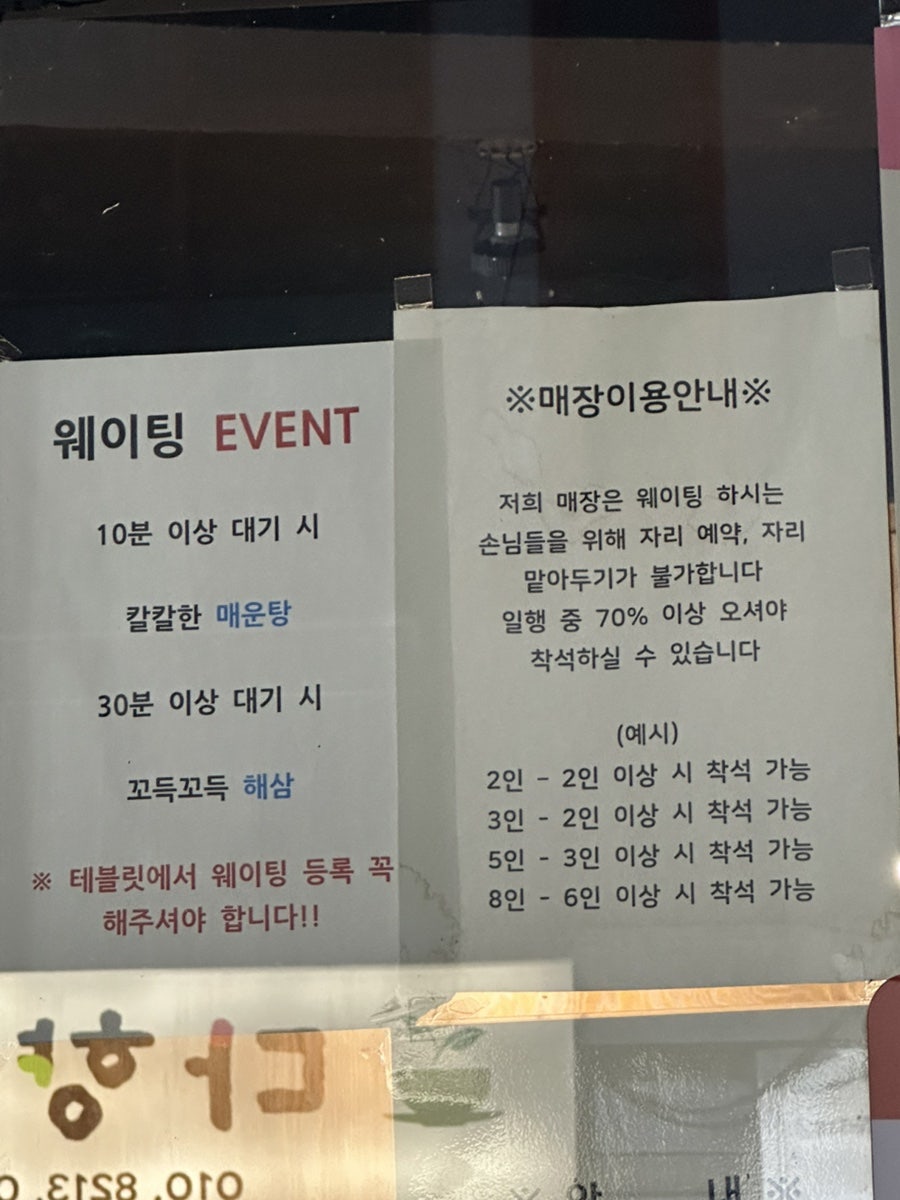 웨이팅 EVENT
10분 이상 대기 시
칼칼한 매운탕
30분 이상 대기 시
꼬득꼬득 해삼
※ 테블릿에서 웨이팅 등록 꼭
해주셔야 합니다!!
※매장이용안내※
저희 매장은 웨이팅 하시는
손님들을 위해 자리 예약, 자리
맡아두기가 불가합니다
일행 중 70% 이상 오셔야
착석하실 수 있습니다
(예시)
2인 - 2인 이상 시 착석 가능
3인 - 2인 이상 시 착석 가능
5인 - 3인 이상 시 착석 가능
8인 - 6인 이상 시 착석 가능
010. 8213. 0